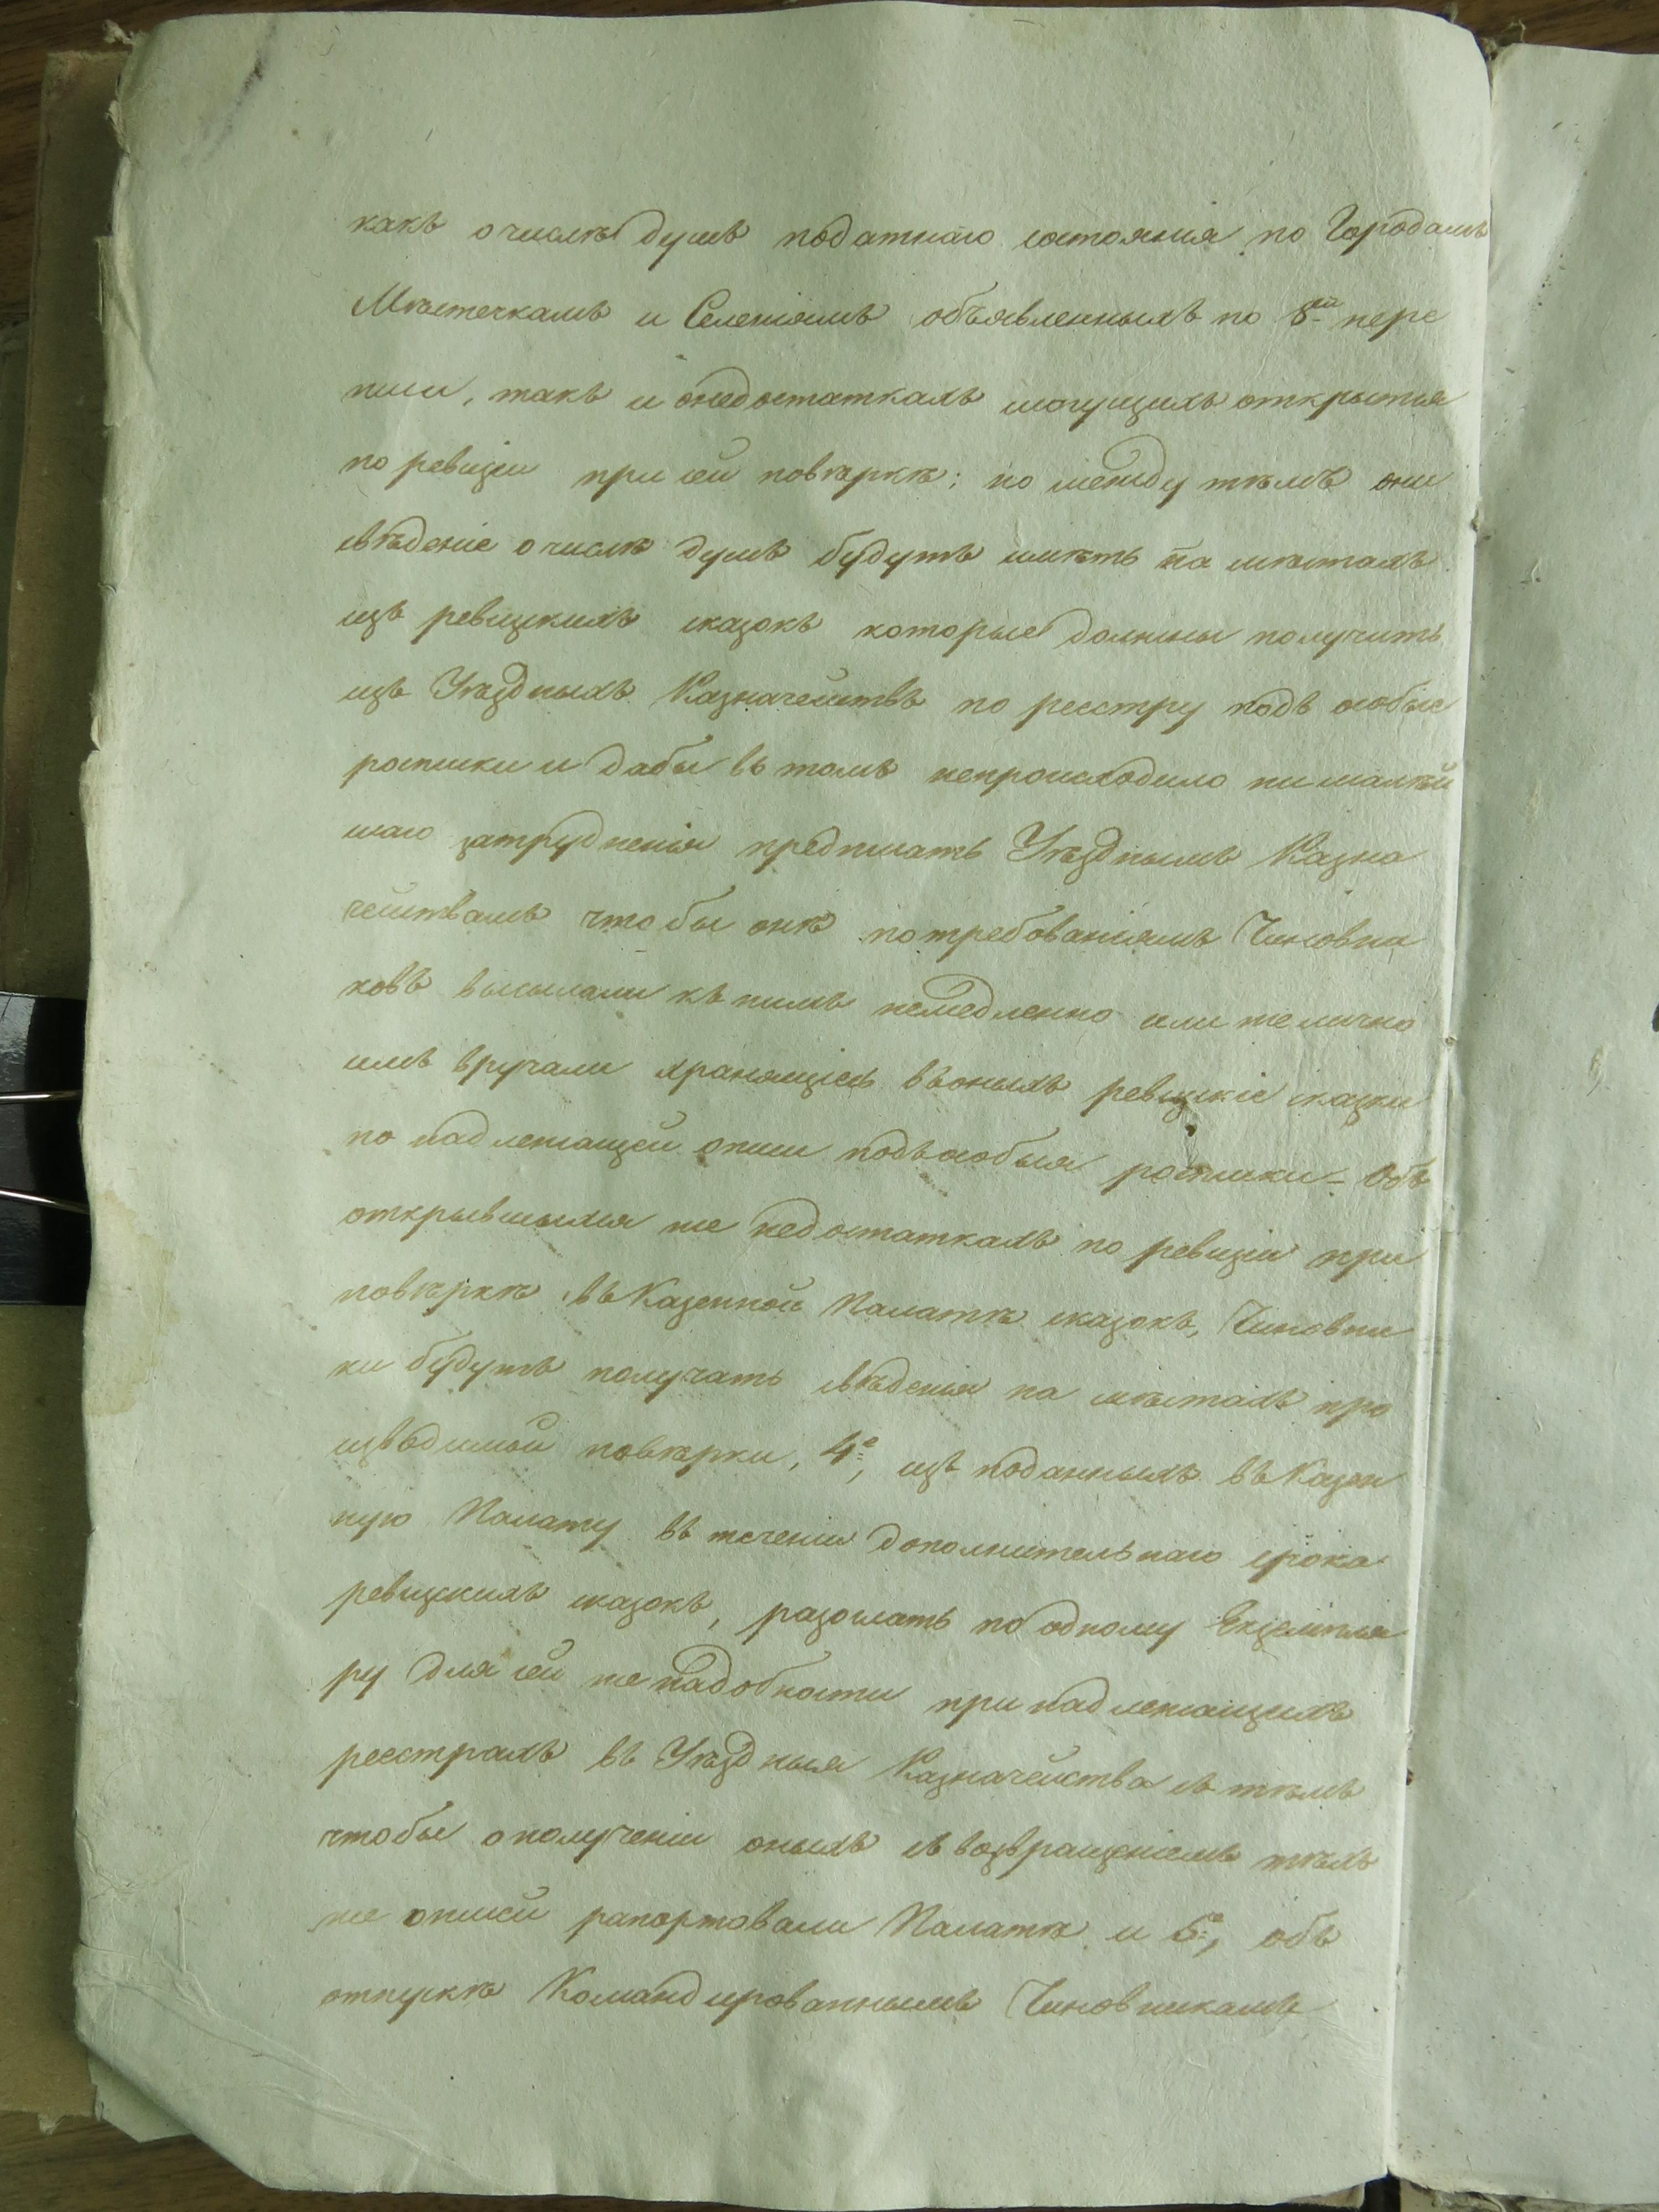 какъ о числѣ душъ податнаго состоянія по Городамъ
Мѣстечкамъ и Селеніямъ объявленныхъ по 8й пере
писи, такъ и онедостаткахъ могущихъ открытся
по ревизіи при сей повѣркѣ; но между тѣмъ они
свѣденіе о числѣ душъ будутъ имѣть на мѣстахъ
изъ ревизкихъ сказокъ которые должны получить
изъ Уѣздныхъ Казначействъ по реестру подъ особые
росписки и дабы въ томъ непроисходило ни малѣй
шаго затрудненія предписать Уѣзднымъ Казна
чействамъ что бы онѣ потребованіямъ Чиновни
ковъ высылали къ нимъ немедленно или же лично
имъ вручали хранящіесь въоныхъ ревизкіе сказки
по надлежащей описи подъособыя росписки - Объ
открывшихся же недостаткахъ по ревизіи при
повѣркѣ въ Казенной Палатѣ сказокъ, Чиновни
ки будутъ получать свѣденія на мѣстахъ про
изводимой повѣрки, 4е, изъ поданныхъ въ Казен
ную Палату въ теченіи дополнительнаго срока
ревизкихъ сказокъ, разослать по одному Екземпля
ру для сей же надобности при надлежащихъ
реестрахъ въ Уѣздныя Казначейства съ тѣмъ
чтобы ополученіи оныхъ съ возвращеніемъ тѣхъ
же описей рапортовали Палатѣ и 5е, объ
отпускѣ Командированнымъ Чиновникамъ